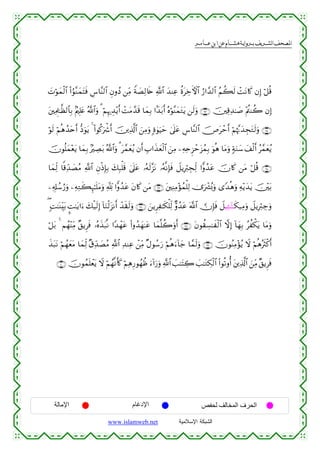 المصحف الشريف برواية هشام عن ابن عامر
قُلْ إِن كَانَتْ لَكُمُ الدَّارُ الْآخِرَةُ عِندَ اللَّهِ خَالِصَةً مِّن دُونِ النَّاسِ فَتَمَنَّوُا الْمَوْتَ
إِن كُنتُمْ صَادِقِينَ وَلَن يَتَمَنَّوْهُ أَبَدًا بِمَا قَدَّمَتْ أَيْدِيهِمْ وَاللَّهُ عَلِيمٌ بِالظَّالِمِينَ
وَلَتَجِدَنَّهُمْ أَحْرَصَ النَّاسِ عَلَى حَيَوةٍ وَمِنَ الَّذِينَ أَشْرَكُوا يَوَدُّ أَحَدُهُمْ لَوْ
يُعَمَّرُ أَلْفَ سَنَةٍ وَمَا هُوَ بِمُزَحْزِحِهِ مِنَ الْعَذَابِ أَن يُعَمَّرَ وَاللَّهُ بَصِيرٌ بِمَا يَعْمَلُونَ
قُلْ مَن كَانَ عَدُوًّا لِّجِبْرِيلَ فَإِنَّهُ نَزَّلَهُ عَلَى قَلْبِكَ بِإِذْنِ اللَّهِ مُصَدِّقًا لِّمَا
بَيْنَ يَدَيْهِ وَهُدًى وَبُشْرَى لِلْمُؤْمِنِينَ مَن كَانَ عَدُوًّا لِّلَّهِ وَمَلَائِكَتِهِ وَرُسُلِهِ
وَجِبْرِيلَ وَمِيكَائِيلَ فَإِنَّ اللَّهَ عَدُوٌّ لِّلْكَافِرِينَ وَلَقَدْ أَنزَلْنَا إِلَيْكَ آيَاتٍ بَيِّنَاتٍ
وَمَا يَكْفُرُ بِهَا إِلَّا الْفَاسِقُونَ أَوَكُلَّمَا عَاهَدُوا عَهْدًا نَّبَذَهُ فَرِيقٌ مِّنْهُم بَلْ
أَكْثَرُهُمْ لَا يُؤْمِنُونَ وَلَمَّا جَاءَهُمْ رَسُولٌ مِّنْ عِندِ اللَّهِ مُصَدِّقٌ لِّمَا مَعَهُمْ نَبَذَ
فَرِيقٌ مِّنَ الَّذِينَ أُوتُوا الْكِتَابَ كِتَابَ اللَّهِ وَرَاءَ ظُهُورِهِمْ كَأَنَّهُمْ لَا يَعْلَمُونَ
الحرف المخالف لحفص الإدغام الإمالة
الشبكة الإسلامية www.islamweb.net